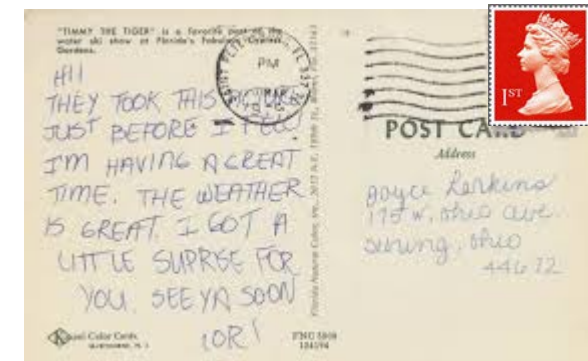 "TIMMY THE TIGER" is a favorite part of the
water ski show at Florida's Fabulous Cypress
Gardens.
HI!
THEY TOOK THIS PICTURE
JUST BEFORE I FELL
I'M HAVING A GREAT
TIME. THE WEATHER
IS GREAT. I GOT A
LITTLE SUPRISE FOR
YOU. SEE YA SOON
LORI
Color Cards
FNC
Florida Natural Color, Inc.,
PM
1ST
POST CARD
Address
Joyce Perkins
175 W. Ohio Ave.
Sebring, Ohio
44672